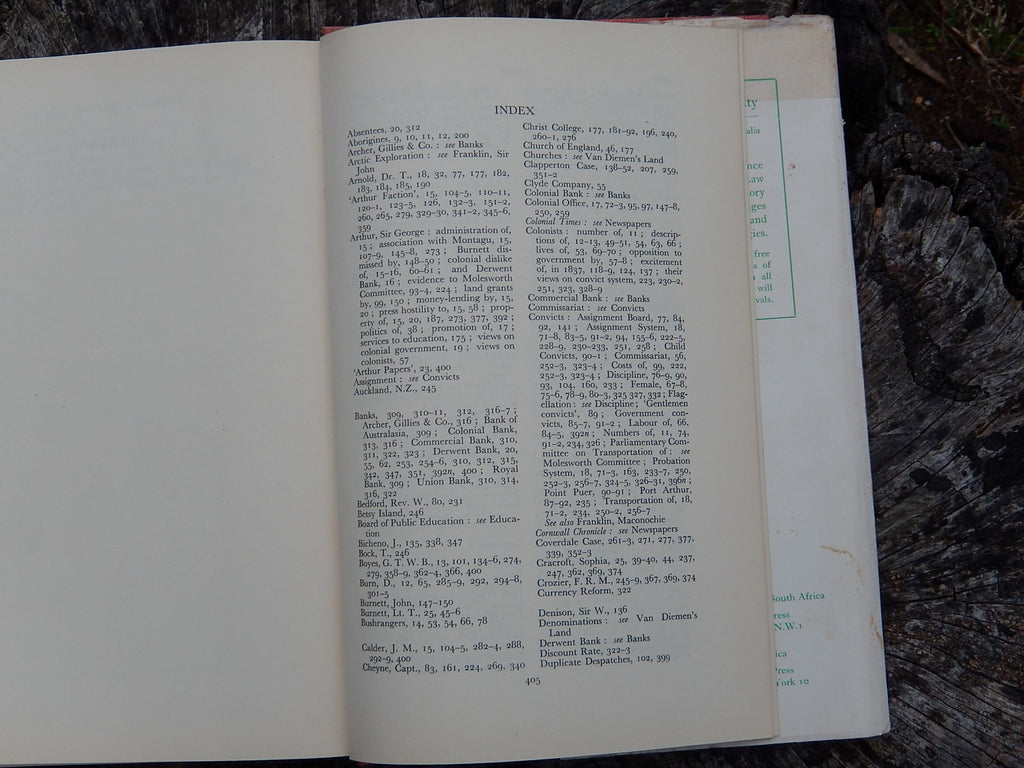 INDEX
Absentees, 20, 312
Aborigines, 9, 10, 11, 12, 200
Archer, Gillies & Co. : see Banks
Arctic Exploration : see Franklin, Sir
John
Arnold, Dr. T., 18, 32, 77, 177, 182,
183, 184, 185, 190
'Arthur Faction', 15, 104–5, 110–11,
120–1, 123–5, 126, 132–3, 151–2,
260, 265, 279, 329–30, 341–2, 345–6,
359
Arthur, Sir George : administration of,
15 ; association with Montagu, 15,
107–9, 145–8, 273 ; Burnett dis-
missed by, 148–50 ; colonial dislike
of, 15–16, 60–61 ; and Derwent
Bank, 16 ; evidence to Molesworth
Committee, 93–4, 224 ; land grants
by, 99, 150 ; money-lending by, 15,
20 ; press hostility to, 15, 58 ; prop-
erty of, 15, 20, 187, 273, 377, 392 ;
politics of, 38 ; promotion of, 17 ;
services to education, 175 ; views on
colonial government, 19 ; views on
colonists, 57
'Arthur Papers', 23, 400
Assignment : see Convicts
Auckland, N.Z., 245
Banks, 309, 310–11, 312, 316–7 ;
Archer, Gillies & Co., 316 ; Bank of
Australasia, 309 ; Colonial Bank,
313, 316 ; Commercial Bank, 310,
311, 322, 323 ; Derwent Bank, 20,
55, 62, 253, 254–6, 310, 312, 315,
342, 347, 351, 392n, 400 ; Royal
Bank, 309 ; Union Bank, 310, 314,
316, 322
Bedford, Rev. W., 80, 231
Betsy Island, 246
Board of Public Education : see Educa-
tion
Bicheno, J., 135, 338, 347
Bock, T., 246
Boyes, G. T. W. B., 13, 101, 134–6, 274,
279, 358–9, 362–4, 366, 400
Burn, D., 12, 65, 285–9, 292, 294–8,
301–5
Burnett, John, 147–150
Burnett, Lt. T., 25, 45–6
Bushrangers, 14, 53, 54, 66, 78
Calder, J. M., 15, 104–5, 282–4, 288,
292–9, 400
Cheyne, Capt., 83, 161, 224, 269, 340
Christ College, 177, 181–92, 196, 240,
260–1, 276
Church of England, 46, 177
Churches : see Van Diemen's Land
Clapperton Case, 138–52, 207, 259,
351–2
Clyde Company, 55
Colonial Bank : see Banks
Colonial Office, 17, 72–3, 95, 97, 147–8,
250, 259
Colonial Times : see Newspapers
Colonists : number of, 11 ; descrip-
tions of, 12–13, 49–51, 54, 63, 66 ;
lives of, 53, 69–70 ; opposition to
government by, 57–8 ; excitement
of, in 1837, 118–9, 124, 137 ; their
views on convict system, 223, 230–2,
251, 323, 328–9
Commercial Bank : see Banks
Commissariat : see Convicts
Convicts : Assignment Board, 77, 84,
92, 141 ; Assignment System, 18,
71–8, 83–5, 91–2, 94, 155–6, 222–5,
228–9, 230–233, 251, 258 ; Child
Convicts, 90–1 ; Commissariat, 56,
252–3, 323–4 ; Costs of, 99, 222,
252–3, 323–4 ; Discipline, 76–9, 90,
93, 104, 160, 233 ; Female, 67–8,
75–6, 78–9, 80–3, 325 327, 332 ; Flag-
ellation : see Discipline ; 'Gentlemen
convicts', 89 ; Government con-
victs, 85–7, 91–2 ; Labour of, 66,
84–5, 392n ; Numbers of, 11, 74,
91–2, 234, 326 ; Parliamentary Com-
mittee on Transportation of : see
Molesworth Committee ; Probation
System, 18, 71–3, 163, 233–7, 250,
252–3, 256–7, 324–5, 326–31, 396n ;
Point Puer, 90–91 ; Port Arthur,
87–92, 235 ; Transportation of, 18,
71–2, 234, 250–2, 256–7
See also Franklin, Maconochie
Cornwall Chronicle : see Newspapers
Coverdale Case, 261–3, 271, 277, 377,
339, 352–3
Cracroft, Sophia, 25, 39–40, 44, 237,
247, 362, 369, 374
Crozier, F. R. M., 245–9, 367, 369, 374
Currency Reform, 322
Denison, Sir W., 136
Denominations : see Van Diemen's
Land
Derwent Bank : see Banks
Discount Rate, 322–3
Duplicate Despatches, 102, 399
405
ty
alia
nce
Law
ory
ges
and
gies.
free
s of
all
will
vals.
South Africa
ress
N.W.1
ica
Press
York 10